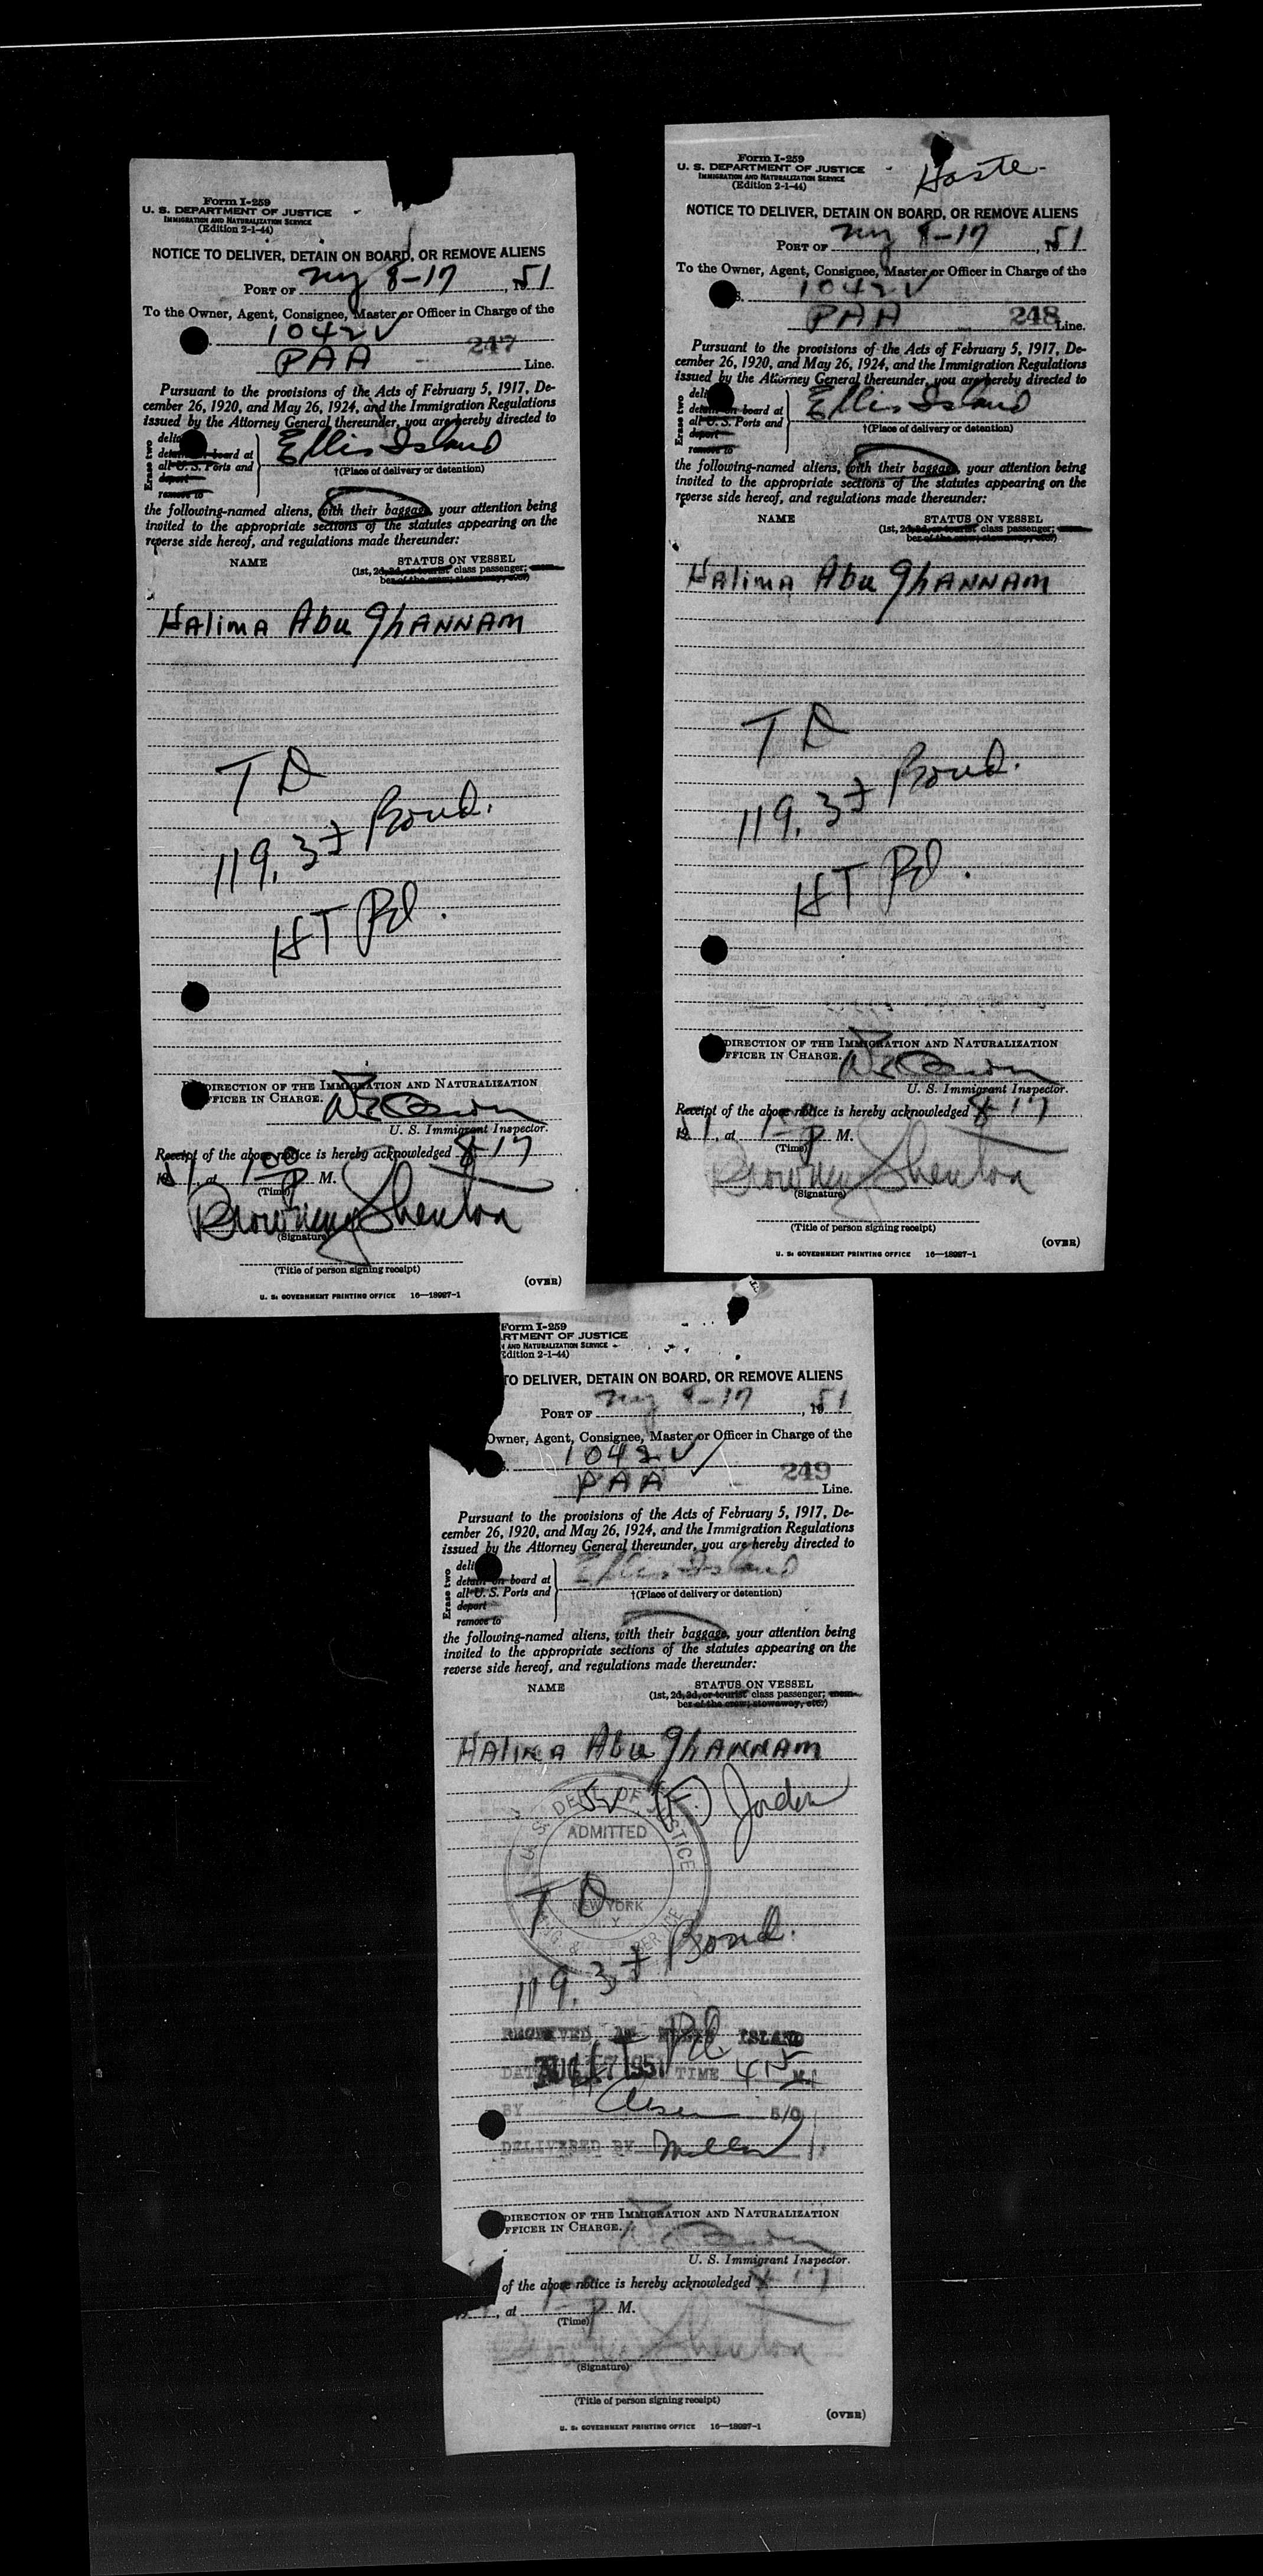 Form I-259
U. S. DEPARTMENT OF JUSTICE
IMMIGRATION AND NATURALIZATION SERVICE
(Edition 2-1-44)
NOTICE TO DELIVER, DETAIN ON BOARD, OR REMOVE ALIENS
PORT OF ny 8-17, 1951
To the Owner, Agent, Consignee, Master or Officer in Charge of the
1042V
PAA 247 Line.
Pursuant to the provisions of the Acts of February 5, 1917, De-
cember 26, 1920, and May 26, 1924, and the Immigration Regulations
issued by the Attorney General thereunder, you are hereby directed to
Erase two
deli
detain on board at
all U. S. Ports and
deport
remove to
Ellis Island
†(Place of delivery or detention)
the following-named aliens, with their baggage, your attention being
invited to the appropriate sections of the statutes appearing on the
reverse side hereof, and regulations made thereunder:
NAME STATUS ON VESSEL
(1st, 2d, 3d, or tourist class passenger; mem-
ber of the crew; stowaway, etc.)
HAlimA Abu ghANNAM
T D
119.3 + Bond.
HT Rd.
DIRECTION OF THE IMMIGRATION AND NATURALIZATION
FFICER IN CHARGE.
U. S. Immigrant Inspector.
Receipt of the above notice is hereby acknowledged 8-17
1951, at 1 00 P M.
(Time)
Browning Shenton
(Signature)
(Title of person signing receipt)
(OVER)
U. S. GOVERNMENT PRINTING OFFICE 16—18987-1
Form I-259
U. S. DEPARTMENT OF JUSTICE
IMMIGRATION AND NATURALIZATION SERVICE
(Edition 2-1-44)
Haste
NOTICE TO DELIVER, DETAIN ON BOARD, OR REMOVE ALIENS
PORT OF ny 8-17, 1951
To the Owner, Agent, Consignee, Master or Officer in Charge of the
S. 1042V
PAA 248 Line.
Pursuant to the provisions of the Acts of February 5, 1917, De-
cember 26, 1920, and May 26, 1924, and the Immigration Regulations
issued by the Attorney General thereunder, you are hereby directed to
Erase two
deli
detain on board at
all U. S. Ports and
deport
remove to
Ellis Island
†(Place of delivery or detention)
the following-named aliens, with their baggage, your attention being
invited to the appropriate sections of the statutes appearing on the
reverse side hereof, and regulations made thereunder:
NAME STATUS ON VESSEL
(1st, 2d, 3d, or tourist class passenger; mem-
ber of the crew; stowaway, etc.)
HAlimA Abu ghANNAM
T D
119.3 + Bond.
HT Rd.
DIRECTION OF THE IMMIGRATION AND NATURALIZATION
FFICER IN CHARGE.
U. S. Immigrant Inspector.
Receipt of the above notice is hereby acknowledged 8-17
1951, at 1 00 P M.
(Time)
Browning Shenton
(Signature)
(Title of person signing receipt)
(OVER)
U. S. GOVERNMENT PRINTING OFFICE 16—18987-1
Form I-259
RTMENT OF JUSTICE
AND NATURALIZATION SERVICE
Edition 2-1-44)
TO DELIVER, DETAIN ON BOARD, OR REMOVE ALIENS
PORT OF ny 8-17, 1951
Owner, Agent, Consignee, Master or Officer in Charge of the
1042V
PAA 249 Line.
Pursuant to the provisions of the Acts of February 5, 1917, De-
cember 26, 1920, and May 26, 1924, and the Immigration Regulations
issued by the Attorney General thereunder, you are hereby directed to
Erase two
deli
detain on board at
all U. S. Ports and
deport
remove to
Ellis Island
†(Place of delivery or detention)
the following-named aliens, with their baggage, your attention being
invited to the appropriate sections of the statutes appearing on the
reverse side hereof, and regulations made thereunder:
NAME STATUS ON VESSEL
(1st, 2d, 3d, or tourist class passenger; mem-
ber of the crew; stowaway, etc.)
HAlimA Abu ghANNAM
(F.) Jordan
U. S. DEPT. OF JUSTICE
ADMITTED
T D
NEW YORK
119.3 + Bond.
HT Rd
RECEIVED AT ELLIS ISLAND
DATE AUG 17 1951 TIME 415 M.
BY S/O
DELIVERED BY Miller
DIRECTION OF THE IMMIGRATION AND NATURALIZATION
FFICER IN CHARGE.
U. S. Immigrant Inspector.
of the above notice is hereby acknowledged 8-17
, at P M.
(Time)
Shenton
(Signature)
(Title of person signing receipt)
(OVER)
U. S. GOVERNMENT PRINTING OFFICE 16—18987-1